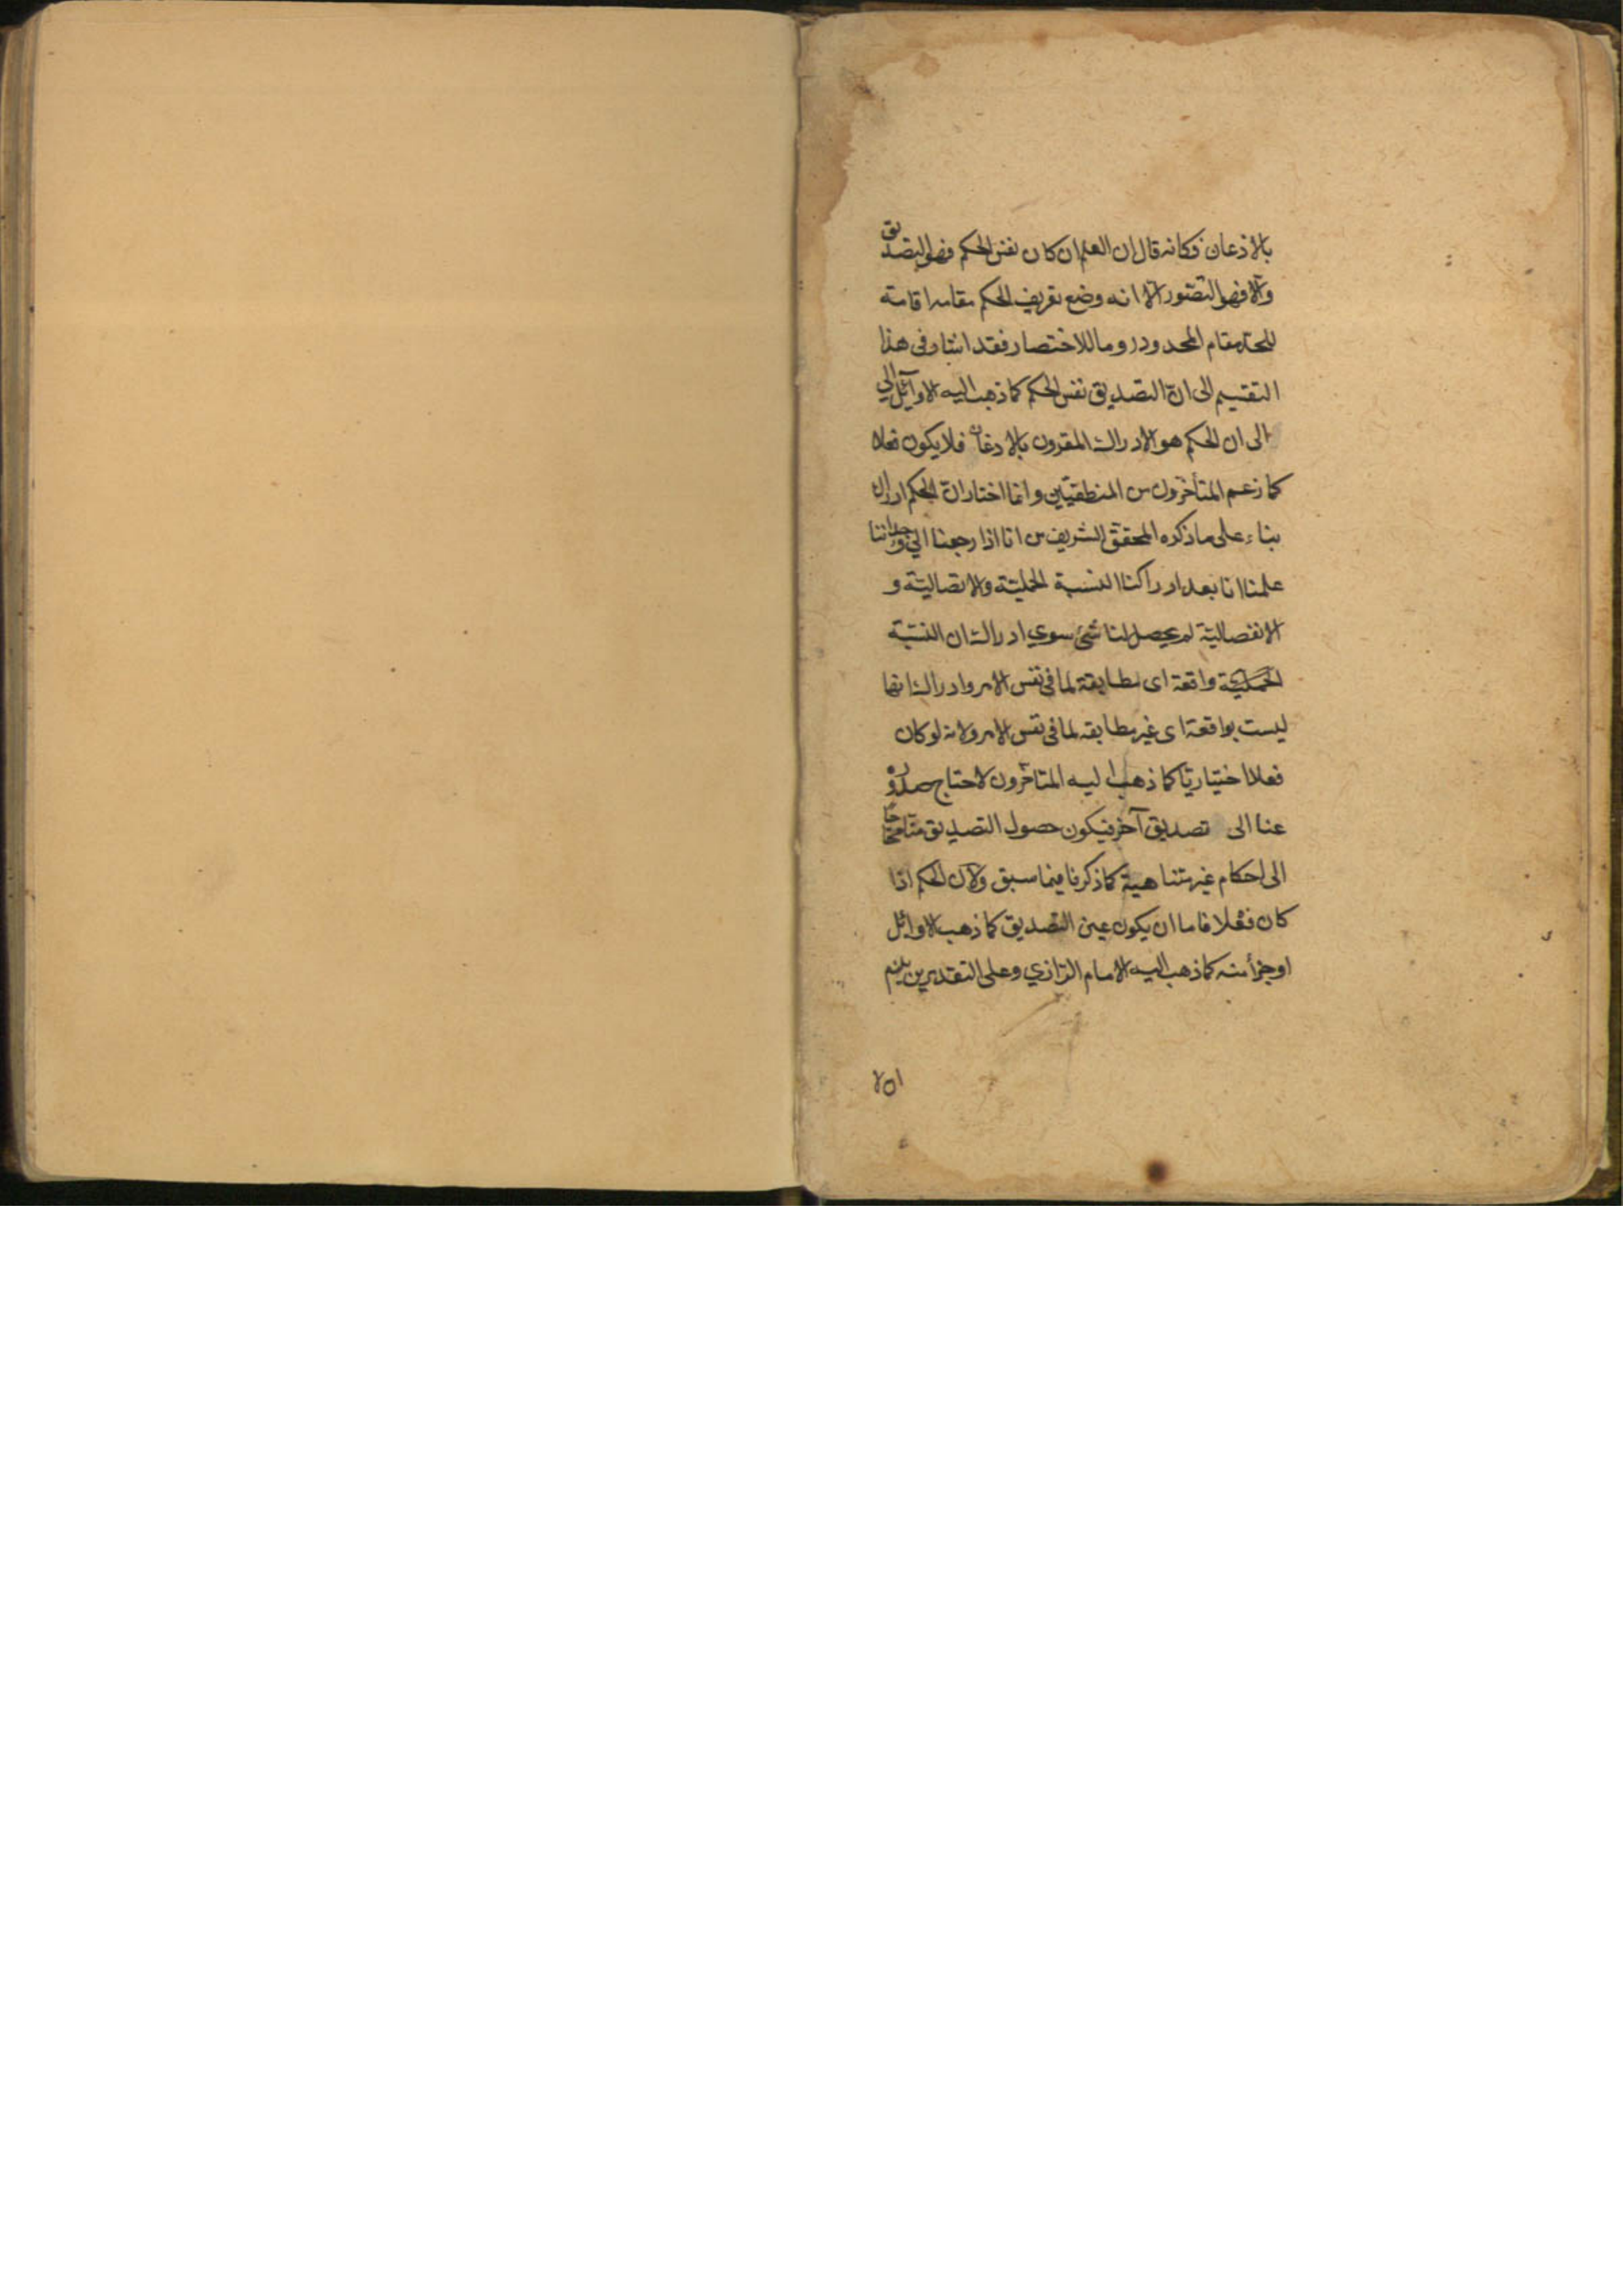 بالاذعان فكانه قال ان العلم ان كان نفس الحكم فهو التصديق
والّا فهو التصّور الّا انه وضع تعريف الحكم مقامه اقامة
للحد مقام المحدود روما للاختصار فقد اشار فى هذا
التقسيم الى انّ التصديق نفس الحكم كما ذهب اليه الاوآئل الي
الى ان الحكم هو الادراك المقرون بالادغان فلا يكون فعلا
كما زعم المتأخرون من المنطقيّين وانما اختار انّ الحكم ادراك
بناء على ما ذكره المحقق الشريف من انا اذا رجعنا الي وجداننا
علمنا انا بعد ادراكنا النسبة الحمليّة والاتصاليّة و
الانفصاليّة لم يحصل لنا شئ سوي ادراك ان النسبة
الحمليّة واقعة اى مطابقة لما فى نفس الامر وادراك انها
ليست بواقعة اى غير مطابقه لما فى نفس الامر ولانه لو كان
فعلا اختياريّا كما ذهب اليه المتاخرون لاحتاج صدوره
عنا الى تصديق آخر فيكون حصول التصديق
الى احكام غير متناهية كما ذكرنا فيما سبق ولانّ الحكم اذا
كان فعلا فاما ان يكون عين التصديق كما ذهب الاوائل
او جزأ منه كما ذهب اليه الامام الرّازي وعلى التقديرين يلزم
ان لا